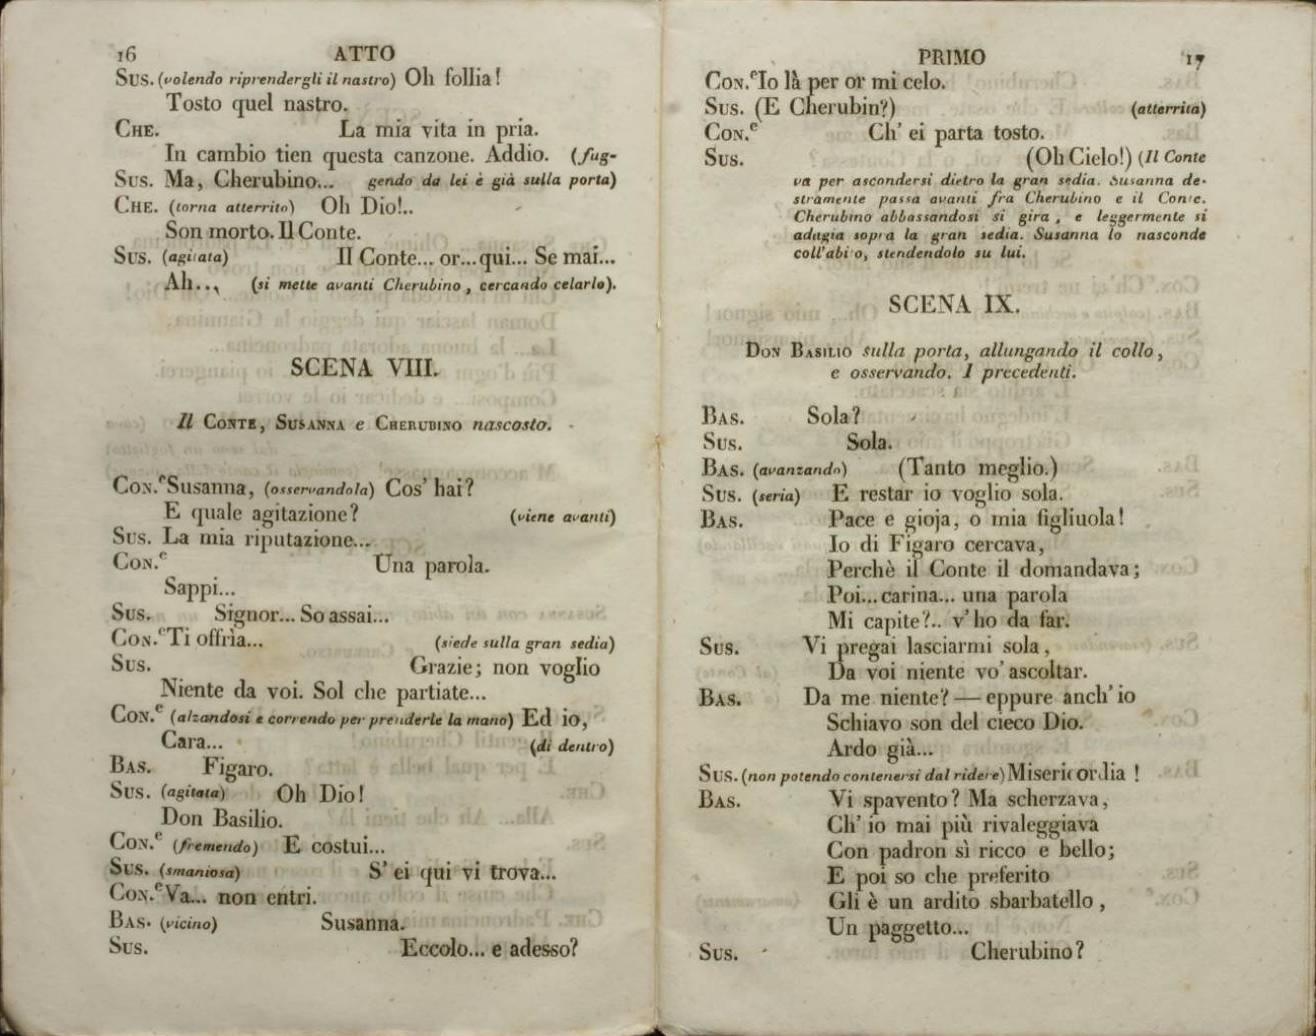 16 ATTO
SUS. (volendo riprendergli il nastro) Oh follia!
Tosto quel nastro.
CHE. La mia vita in pria.
In cambio tien questa canzone. Addio. (fug-
SUS. Ma, Cherubino... gendo da lei è già sulla porta)
CHE. (torna atterrito) Oh Dio!..
Son morto. Il Conte.
SUS. (agitata) Il Conte... or...qui... Se mai...
Ah... (si mette avanti Cherubino, cercando celarlo).
SCENA VIII.
Il CONTE, SUSANNA e CHERUBINO nascosto.
CON.e Susanna, (osservandola) Cos' hai?
E quale agitazione? (viene avanti)
SUS. La mia riputazione...
CON.e Una parola.
Sappi...
SUS. Signor... So assai...
CON.e Ti offria... (siede sulla gran sedia)
SUS. Grazie; non voglio
Niente da voi. Sol che partiate...
CON.e (alzandosi e correndo per prenderle la mano) Ed io,
Cara... (di dentro)
BAS. Figaro.
SUS. (agitata) Oh Dio!
Don Basilio.
CON.e (fremendo) E costui...
SUS. (smaniosa) S' ei qui vi trova...
CON.e Va... non entri.
BAS. (vicino) Susanna.
SUS. Eccolo... e adesso?
PRIMO 17
CON.e Io là per or mi celo.
SUS. (E Cherubin?) (atterrita)
CON.e Ch' ei parta tosto.
SUS. (Oh Cielo!) (Il Conte
va per ascondersi dietro la gran sedia. Susanna de-
stramente passa avanti fra Cherubino e il Conte.
Cherubino abbassandosi si gira, e leggermente si
adagia sopra la gran sedia. Susanna lo nasconde
coll'abito, stendendolo su lui.
SCENA IX.
DON BASILIO sulla porta, allungando il collo,
e osservando. I precedenti.
BAS. Sola?
SUS. Sola.
BAS. (avanzando) (Tanto meglio.)
SUS. (seria) E restar io voglio sola.
BAS. Pace e gioja, o mia figliuola!
Io di Figaro cercava,
Perchè il Conte il domandava;
Poi... carina... una parola
Mi capite?.. v' ho da far.
SUS. Vi pregai lasciarmi sola,
Da voi niente vo' ascoltar.
BAS. Da me niente? — eppure anch' io
Schiavo son del cieco Dio.
Ardo già...
SUS. (non potendo contenersi dal ridere) Misericordia!
BAS. Vi spavento? Ma scherzava,
Ch' io mai più rivaleggiava
Con padron sì ricco e bello;
E poi so che preferito
Gli è un ardito sbarbatello,
Un paggetto...
SUS. Cherubino?